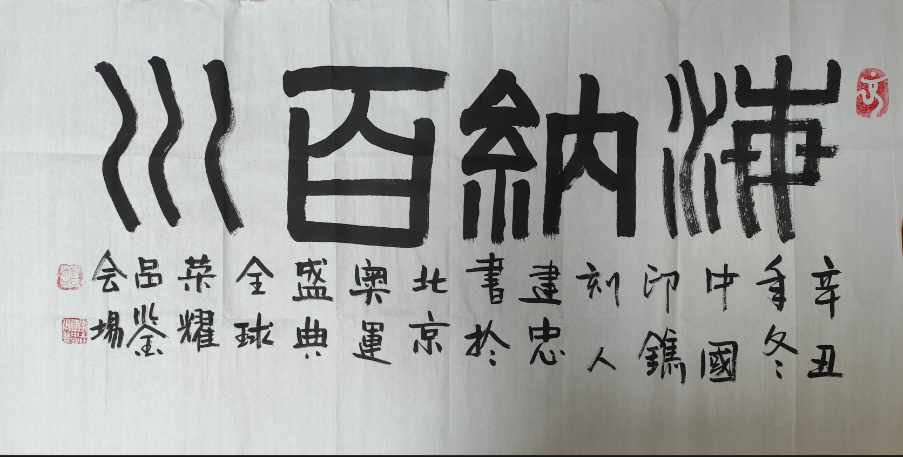 海納百川
辛丑
年冬
中國
印鐫
刻人
建忠
書於
北京
奧運
盛典
全球
荣耀
品鉴
会場